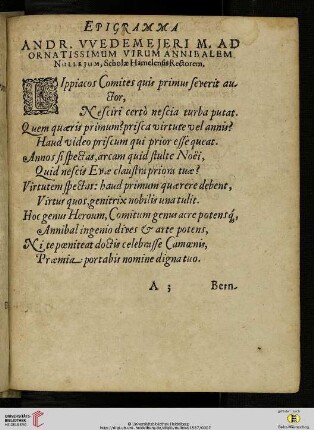 EPIGRAMMA
ANDR. VVEDEMEJERI M. AD
ORNATISSIMUM VIRUM ANNIBALEM
NULLEJUM, Scholæ Hamelensis Rectorem.
LIppiacos Comites quis primus severit au-
ctor,
Nesciri certò nescia turba putat.
Quem quæris primum? prisca virtute vel annis?
Haud video priscum qui prior esse queat.
Annos si spectas, arcam quid stulte Noëi,
Quid nescis Evæ claustra priora tuæ?
Virtutem spectat: haud primum quærere debent,
Virtus quos, genitrix nobilis una tulit.
Hoc genus Heroum, Comitum genus acre potensq́,
Annibal ingenio dives & arte potens,
Ni te pœniteat doctis celebrasse Camœnis,
Præmia portabis nomine digna tuo.
A 3 Bern-
UNIVERSITÄTS-
BIBLIOTHEK
HEIDELBERG
© Universitätsbibliothek Heidelberg